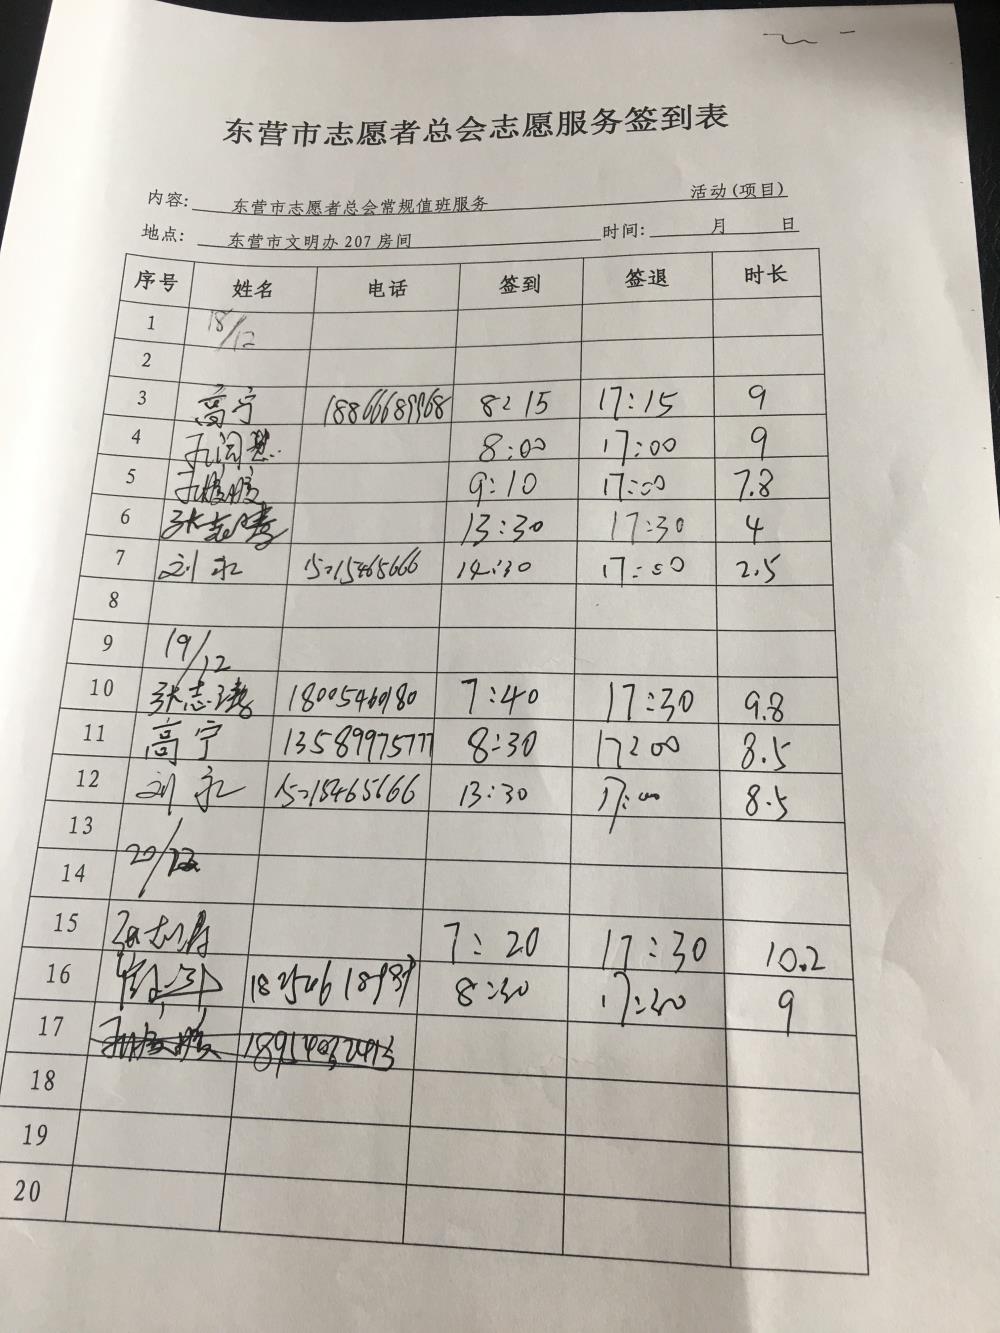 东营市志愿者总会志愿服务签到表
内容: 东营市志愿者总会常规值班服务 活动(项目)
地点: 东营市文明办 207 房间 时间: 月 日
序号 姓名 电话 签到 签退 时长
1 18/12
2
3 高宁 18866689968 8:15 17:15 9
4 8:00 17:00 9
5 9:10 17:00 7.8
6 13:30 17:30 4
7 刘永 15215465666 14:30 17:00 2.5
8
9 19/12
10 18005460180 7:40 17:30 9.8
11 高宁 13589975777 8:30 17:00 8.5
12 刘永 15215465666 13:30 17:00 8.5
13
14
15 7:20 17:30 10.2
16 8:30 17:30 9
17
18
19
20